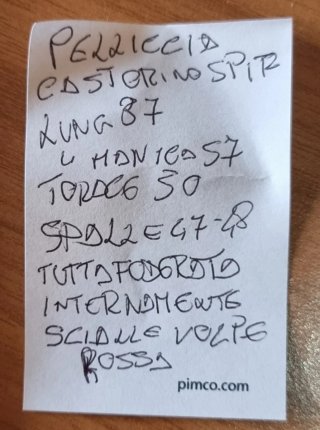 PELLICCIA
CASTORINO SPITZ
LUNG 87
L MANICA 57
TORACE 50
SPALLE 47-48
TUTTA FODERATA
INTERNAMENTE
SCIALLE VOLPE
ROSSA
pimco.com